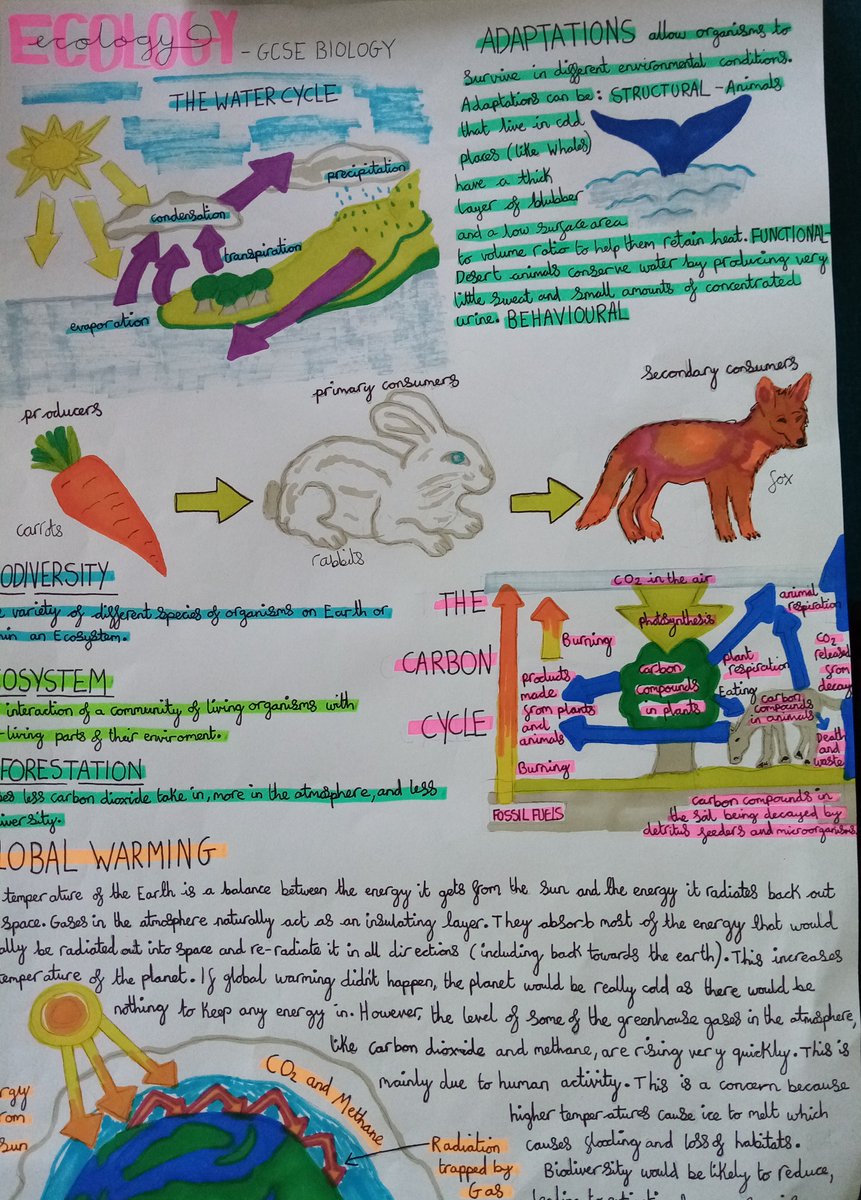 ECOLOGY
ecology
- GCSE BIOLOGY
THE WATER CYCLE
precipitation
condensation
transpiration
evaporation
ADAPTATIONS allow organisms to
Survive in different environmental conditions.
Adaptations can be: STRUCTURAL - Animals
that live in cold
places (like whales)
have a thick
layer of blubber
and a low surface area
to volume ratio to help them retain heat. FUNCTIONAL-
Desert animals conserve water by producing very
little sweat and small amounts of concentrated
urine. BEHAVIOURAL
producers
primary consumers
secondary consumers
carrots
rabbits
fox
ODIVERSITY
variety of different species of organisms on Earth or
in an Ecosystem.
OSYSTEM
interaction of a community of living organisms with
-living parts of their enviroment.
FORESTATION
less carbon dioxide take in, more in the atmosphere, and less
iversity.
THE
CARBON
CYCLE
CO2 in the air
photosynthesis
animal
respiration
Burning
plant
respiration
CO2
released
from
decay
products
made
from plants
and
animals
carbon
compounds
in plants
Eating
carbon
compounds
in animals
Death
and
waste
Burning
FOSSIL FUELS
carbon compounds in
the soil being decayed by
detritus feeders and microorganisms
LOBAL WARMING
temperature of the Earth is a balance between the energy it gets from the sun and the energy it radiates back out
space. Gases in the atmosphere naturally act as an insulating layer. They absorb most of the energy that would
ally be radiated out into space and re-radiate it in all directions (including back towards the earth). This increases
temperature of the planet. If global warming didn't happen, the planet would be really cold as there would be
nothing to keep any energy in. However, the level of some of the greenhouse gases in the atmosphere,
like carbon dioxide and methane, are rising very quickly. This is
mainly due to human activity. This is a concern because
higher temperatures cause ice to melt which
causes flooding and loss of habitats.
Biodiversity would be likely to reduce,
CO2 and Methane
rgy
rom
sun
Radiation
trapped by
Gas